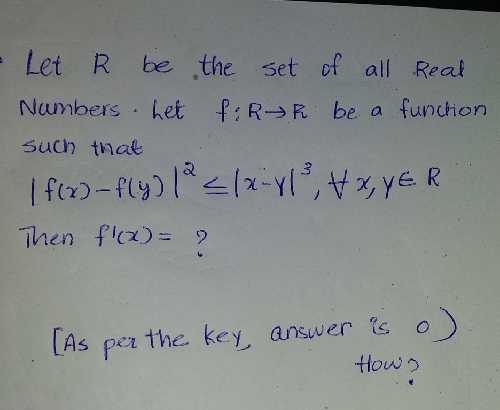 Let R be the set of all Real
Numbers. Let f: R→R be a function
such that
|f(x)-f(y)|² ≤ |x-y|³, ∀ x, y ∈ R
Then f'(x) = ?
[As per the key, answer is 0)
How?